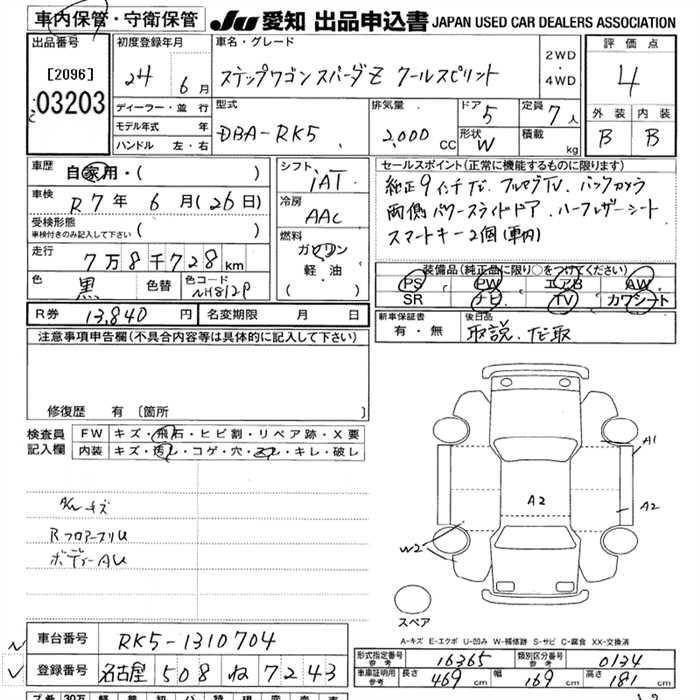 車内保管・守衛保管
JU 愛知 出品申込書 JAPAN USED CAR DEALERS ASSOCIATION
出品番号
[2096]
03203
初度登録年月
24 6月
ディーラー・並行
モデル年式 年
ハンドル 左・右
車名・グレード
ステップワゴンスパーダZ クールスピリット
2WD
・
4WD
型式
DBA-RK5
排気量
2,000 CC
ドア 5
形状 W
定員 7人
積載 kg
評価点
4
外装 内装
B B
車歴 自家用・( )
車検 R7年6月(26日)
受検形態
車検付きのみ記入して下さい ( )
走行 7万8千728km
色 黒 色替 色コード NH812P
シフト
IAT
冷房
AAC
燃料
ガソリン
軽・油
( )
セールスポイント(正常に機能するものに限ります)
純正9インチナビ. フルセグTV. バックカメラ
両側パワースライドドア. ハーフレザーシート
スマートキー2個(車内)
装備品(純正品に限り○をつけてください)
PS PW エアB AW
SR ナビ TV カワシート
R券 13,840円 名変期限 月 日
新車保証書
有・無
後日品
取説.ナビ取
注意事項申告欄(不具合内容等は具体的に記入して下さい)
修復歴 有〔箇所 〕
検査員
記入欄
FW キズ・飛石・ヒビ割・リペア跡・X要
内装 キズ・汚レ・コゲ・穴・スレ・キレ・破レ
A/Wキズ
RフロアースリU
ボディーAU
A1
A2
A2
W2
スペア
A-キズ E-エクボ U-凹み W-補修跡 S-サビ C-腐食 XX-交換済
車台番号 RK5-1310704
登録番号 名古屋 508 ね 7243
形式指定番号
参考 16365
類別区分番号
参考 0134
車庫証明用
参考 長さ 469cm 幅 169cm 高さ 181cm